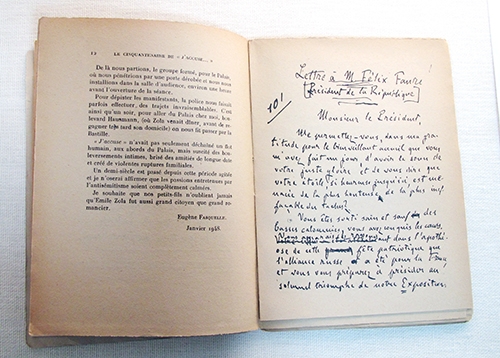 12 LE CINQUANTENAIRE DU « J'ACCUSE... »
De là nous partions, le groupe formé, pour le Palais,
où nous pénétrions par une porte dérobée et nous nous
installions dans la salle d'audience, environ une heure
avant l'ouverture de la séance.
Pour dépister les manifestants, la police nous faisait
parfois effectuer des trajets invraisemblables. C'est
ainsi qu'un soir, pour aller du Palais chez moi, bou-
levard Haussmann, (où Zola venait dîner, avant de re-
gagner son domicile) on nous fit passer par la
Bastille.
« J'accuse » n'avait pas seulement déchaîné un flot
humain, aux abords du Palais, mais suscité des bou-
leversements intimes, brisé des amitiés de longue date
et créé de violentes ruptures familiales.
Un demi-siècle est passé depuis cette période agitée
et je n'oserai affirmer que les passions entretenues par
l'antisémitisme soient complètement calmées.
Je souhaite que nos petits-fils n'oublient jamais
qu'Emile Zola fut aussi grand citoyen que grand ro-
mancier.
Eugène Fasquelle.
Janvier 1948.
Lettre à M. Félix Faure
Président de la République
10!
Monsieur le Président,
Me permettez-vous, dans ma gra-
titude pour le bienveillant accueil que vous
m'avez fait un jour, d'avoir le souci de
votre juste gloire et de vous dire que
votre étoile, si heureuse jusqu'ici, est me-
nacée de la plus honteuse, de la plus inef-
façable des taches?
Vous êtes sorti sain et sauf des
basses calomnies, vous avez conquis les cœurs.
Vous apparaissez rayonnant dans l'apothé-
ose de cette fête patriotique que
l'alliance russe a été pour la France
et vous vous préparez à présider au
solennel triomphe de notre Exposition